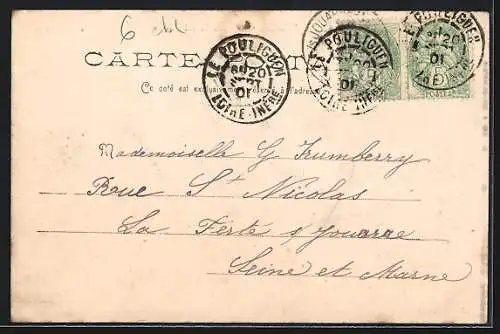 6
CARTE
Ce côté est exclusivement réservé à l'adresse
LE POULIGUEN
20
SEPT
01
LOIRE-INFRE
LE POULIGUEN
20
01
LOIRE-INFRE
LE POULIGUEN
20
01
LOIRE-INFRE
Mademoiselle G Frumberry
Rue St Nicolas
La Ferté s/ Jouarre
Seine et Marne